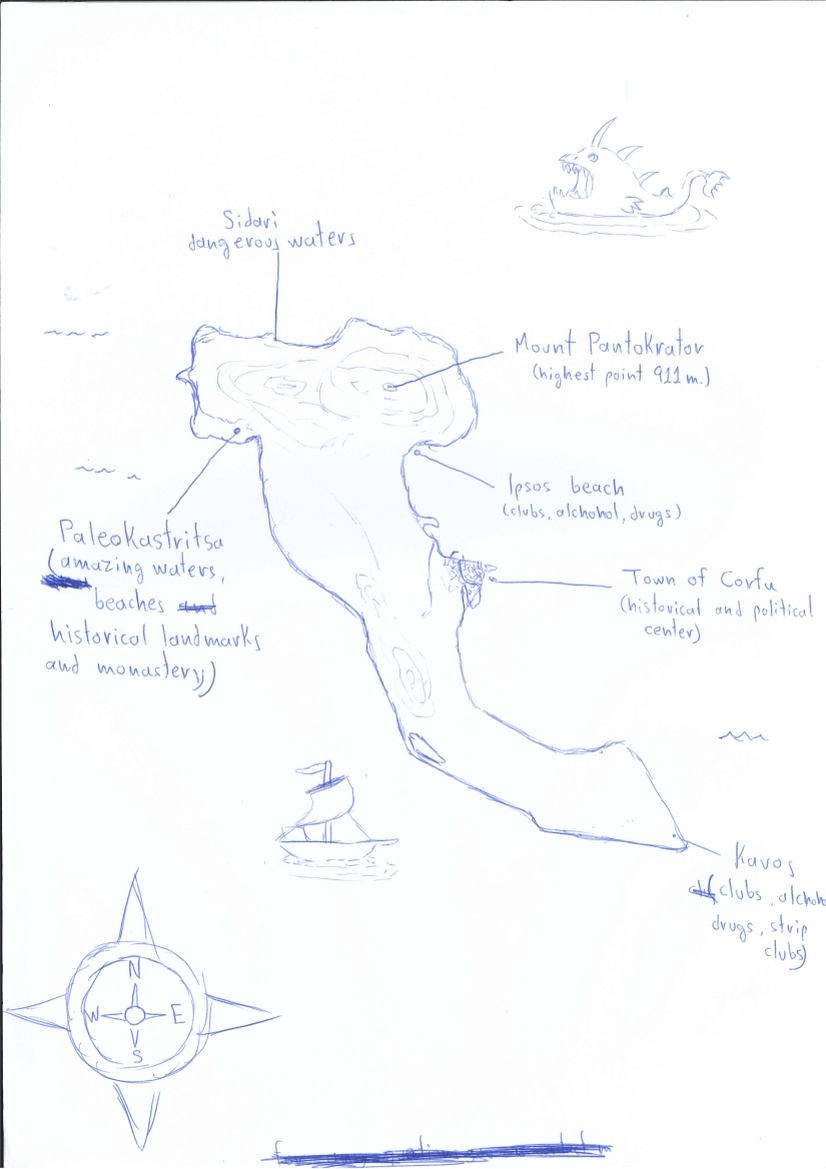 Sidari
dangerous waters
Mount Pantokrator
(highest point 911 m.)
Ipsos beach
(clubs, alchohol, drugs)
Paleokastritsa
(amazing waters,
beaches and
historical landmarks
and monastery)
Town of Corfu
(historical and political
center)
Kavos
(clubs, alchoho
drugs, strip
clubs)
N
W E
S